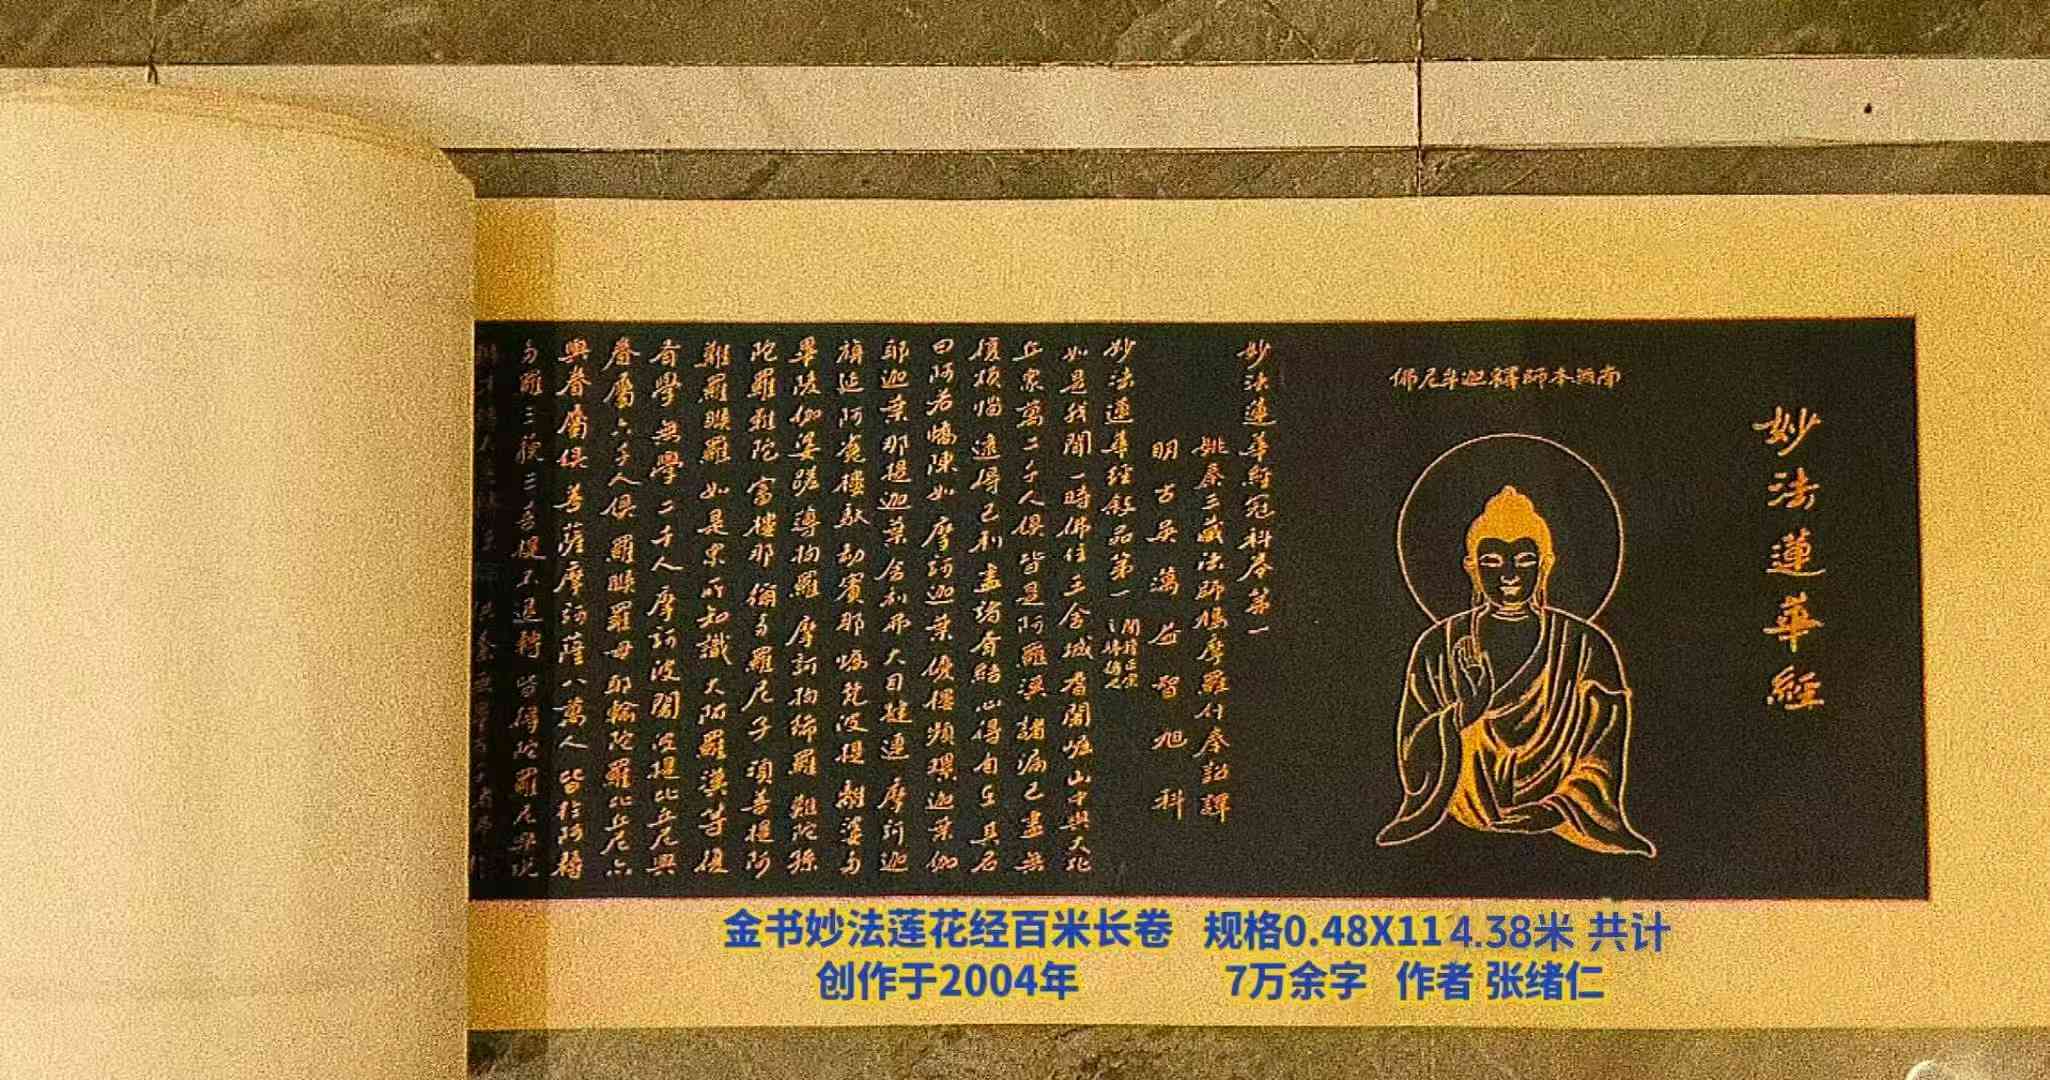 妙法蓮華經
南無本師釋迦牟尼佛
妙法蓮華經冠科卷第一
姚秦三藏法師鳩摩羅什奉詔譯
明古吳蕅益智旭科
妙法蓮華經敘品第一
如是我聞一時佛住王舍城耆闍崛山中與大比
丘衆萬二千人俱皆是阿羅漢諸漏已盡無
復煩惱逮得己利盡諸有結心得自在其名
曰阿若憍陳如摩訶迦葉優樓頻螺迦葉伽
耶迦葉那提迦葉舍利弗大目犍連摩訶迦
旃延阿㝹樓馱劫賓那憍梵波提離婆多
畢陵伽婆蹉薄拘羅摩訶拘絺羅難陀孫
陀羅難陀富樓那彌多羅尼子須菩提阿
難羅睺羅如是衆所知識大阿羅漢等復
有學無學二千人摩訶波闍波提比丘尼與
眷屬六千人俱羅睺羅母耶輸陀羅比丘尼亦
與眷屬俱菩薩摩訶薩八萬人皆於阿耨
多羅三藐三菩提不退轉皆得陀羅尼樂說
金书妙法莲花经百米长卷 规格0.48X114.38米 共计
创作于2004年 7万余字 作者 张绪仁